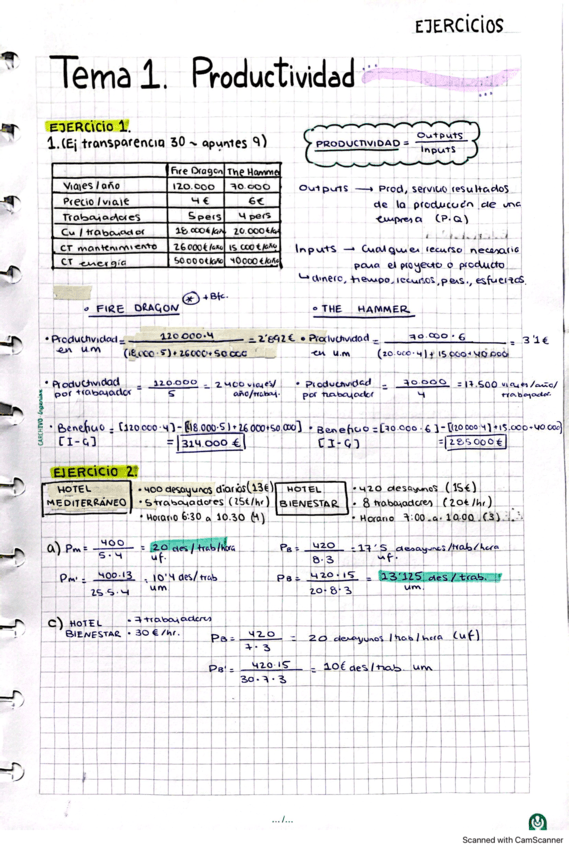 EJERCICIOS
Tema 1. Productividad
EJERCICIO 1.
1. (Ej transparencia 30 ~ apuntes 9)
PRODUCTIVIDAD = Outputs / Inputs
Fire Dragon The Hammer
Viajes/año 120.000 70.000
Precio/viaje 4€ 6€
Trabajadores 5 pers 4 pers
Cu/trabajador 18.000€/año 20.000€/año
CT mantenimiento 26000€/año 15000€/año
CT energía 50000€/año 40000€/año
Outputs → Prod, servicio resultados
de la producción de una
empresa (P·Q)
Inputs → Cualquier recurso necesario
para el proyecto o producto
↳ dinero, tiempo, recursos, pers., esfuerzos.
• FIRE DRAGON * + Bfc.
• THE HAMMER
• Productividad en um = 120.000·4 / (18.000·5)+26000+50.000 = 2'892€
• Productividad en u.m = 70.000·6 / (20.000·4)+15.000+40.000 = 3'1€
• Productividad por trabajador = 120.000 / 5 = 2400 viajes/año/trabaj.
• Productividad por trabajador = 70000 / 4 = 17.500 viajes/año/trabajador
• Beneficio = [120000·4]-[(18000·5)+26000+50,000]
[I-G] = 314.000€
• Beneficio = [70.000·6]-[(20000·4)+15,000+40000]
[I-G] = 285000€
EJERCICIO 2.
HOTEL MEDITERRÁNEO
• 400 desayunos diarios (13€)
• 5 trabajadores (25€/hr)
• Horario 6:30 a 10.30 (4)
HOTEL BIENESTAR
• 420 desayunos (15€)
• 8 trabajadores (20€/hr)
• Horario 7:00 a 10:00 (3)
a) Pm = 400 / 5·4 = 20 des/trab/hora uf.
PB = 420 / 8·3 = 17'5 desayunos/trab/hora uf.
Pm' = 400·13 / 25·5·4 = 10'4 des/trab um
PB = 420·15 / 20·8·3 = 13'125 des/trab. um.
c) HOTEL BIENESTAR
• 7 trabajadores
• 30€/hr.
PB = 420 / 7·3 = 20 desayunos/trab/hora (uf)
PB' = 420·15 / 30·7·3 = 10€ des/trab um
.../...
Scanned with CamScanner